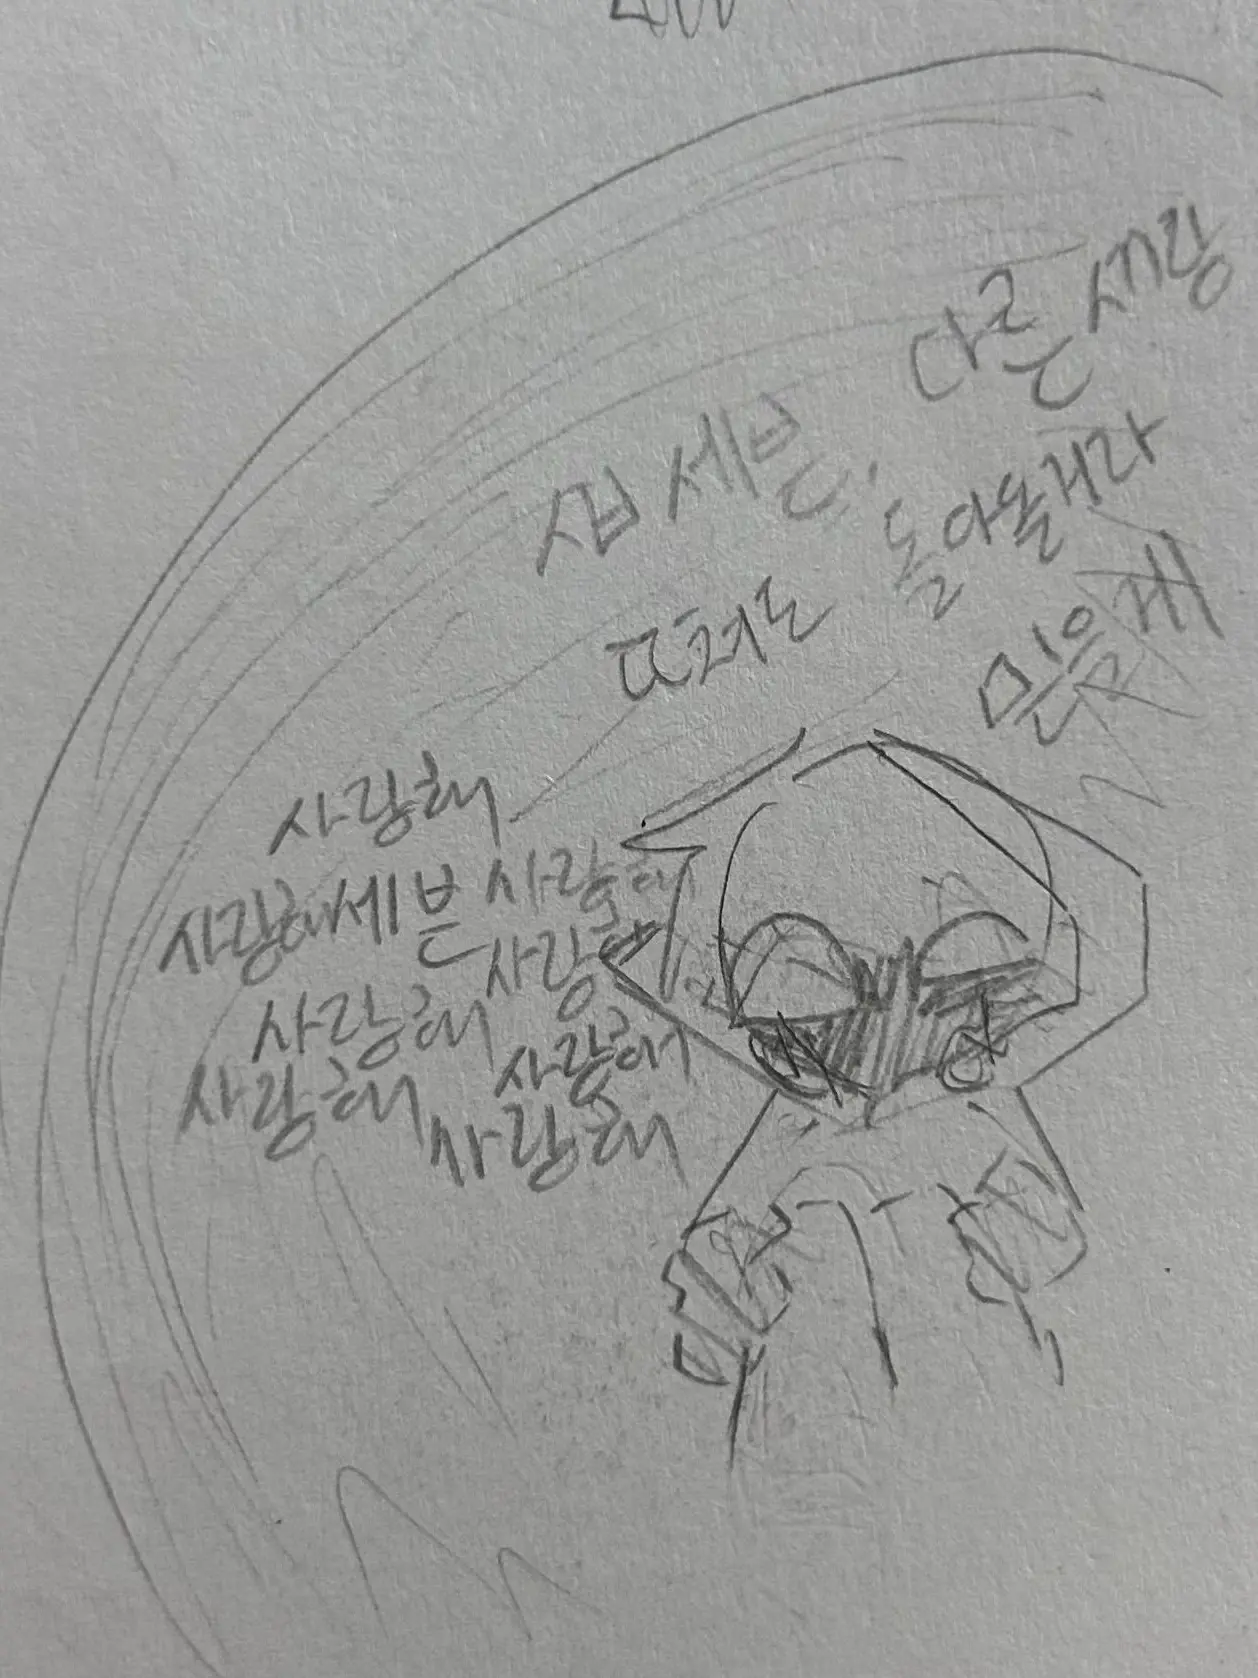 다른 사랑
섭 세븐,
돌아올거라
믿을게
사랑해
사랑해 세븐 사랑해
사랑해
사랑해
사랑해
사랑해
사랑해